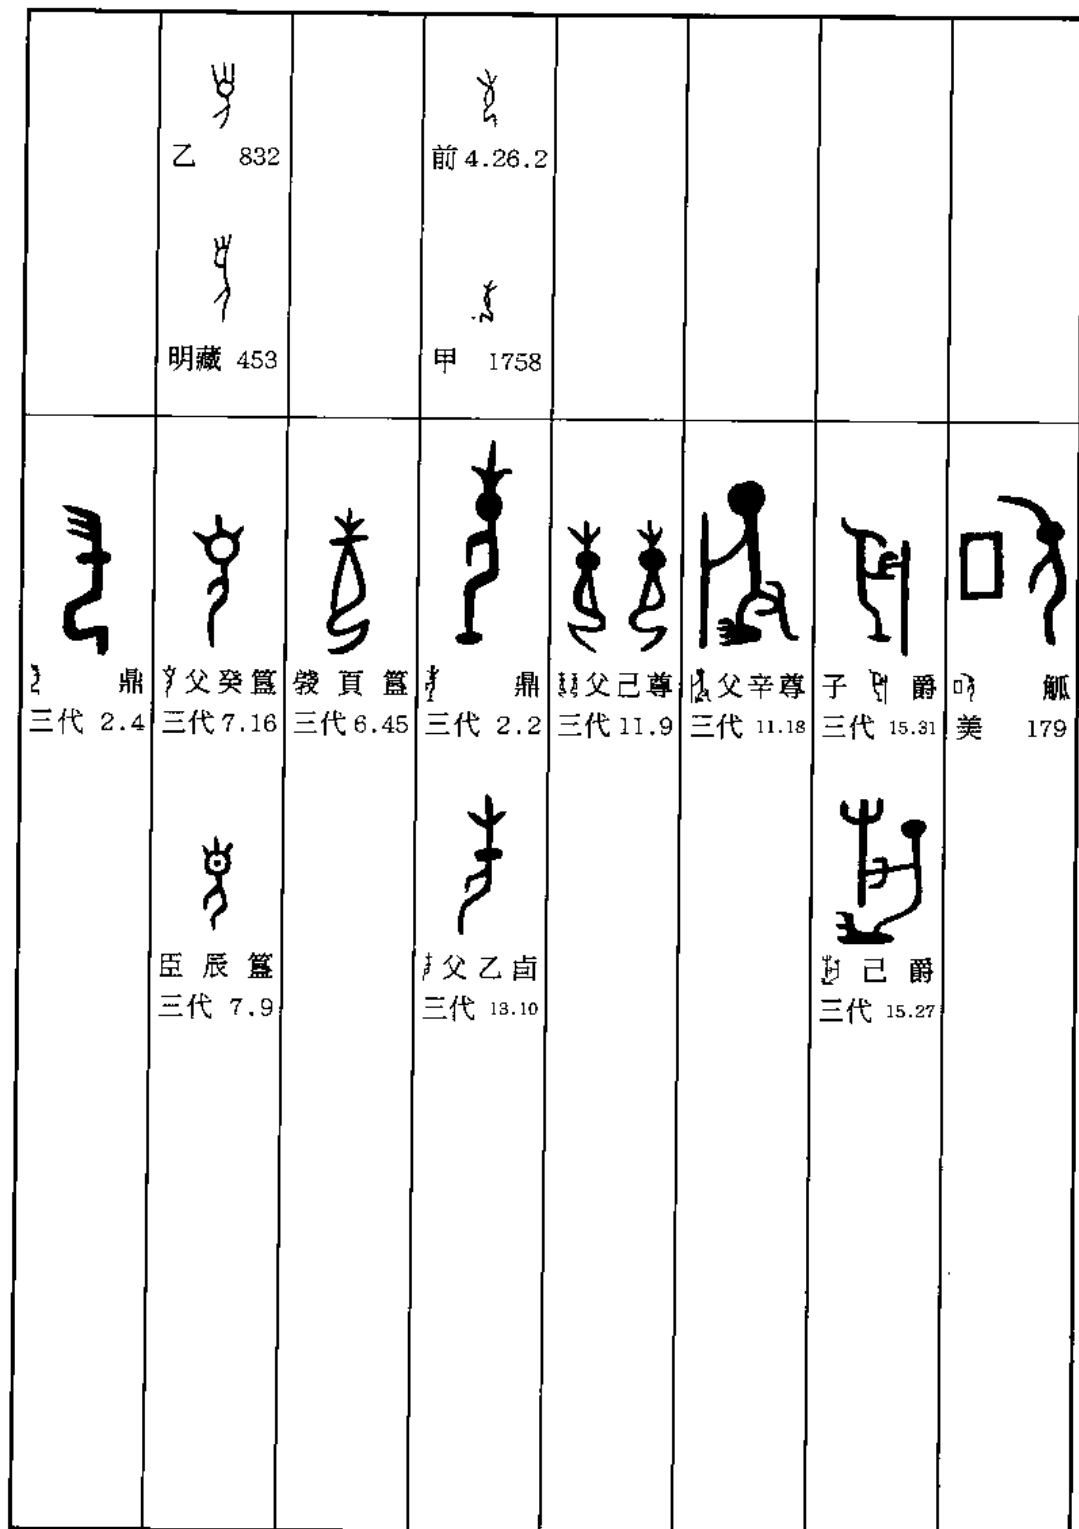 乙 832
前 4.26.2
明藏 453
甲 1758
鼎
三代 2.4
父癸簋
三代 7.16
頁簋
三代 6.45
鼎
三代 2.2
父己尊
三代 11.9
父辛尊
三代 11.18
子 爵
三代 15.31
觚
美 179
臣辰簋
三代 7.9
父乙卣
三代 13.10
己爵
三代 15.27